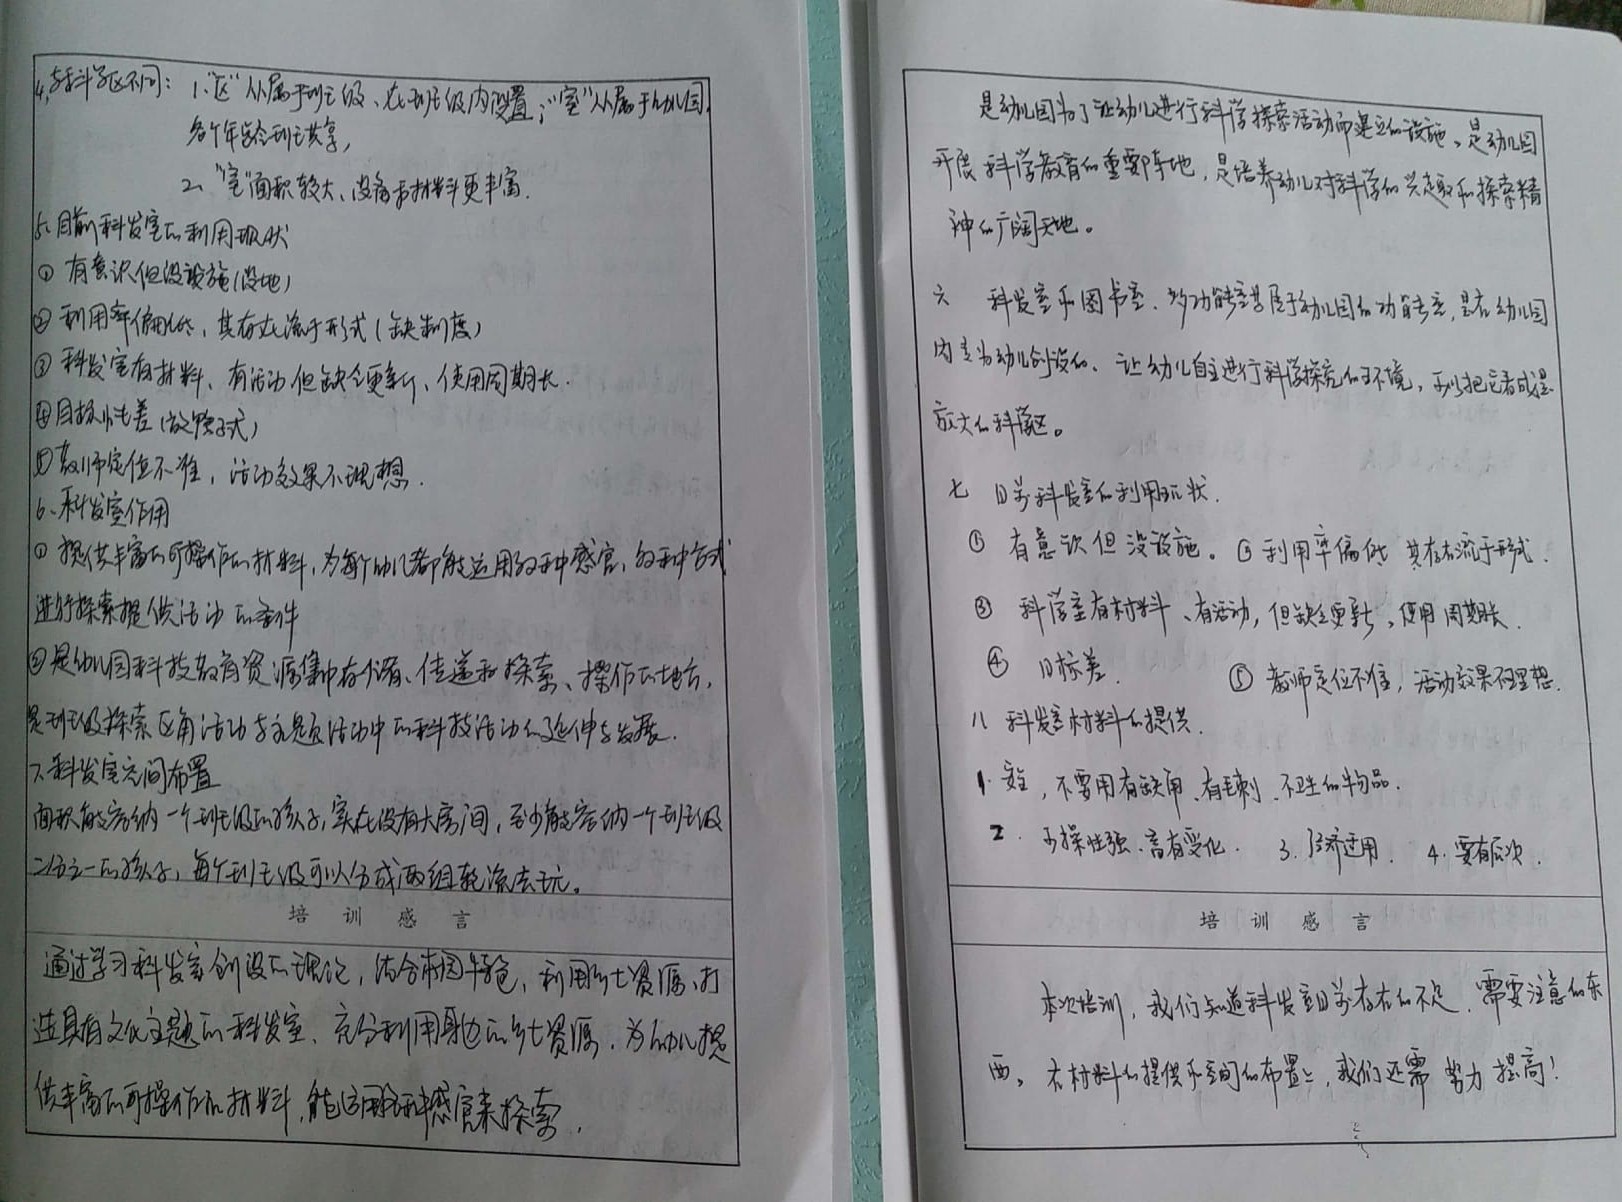 4、与科学区不同：1、"区"从属于班级、在班级内设置；"室"从属于幼儿园，
各个年龄班共享，
2、"室"面积较大、设备与材料更丰富.
5、目前科发室的利用现状
① 有意识但没设施(没地)
② 利用率偏低、其存在流于形式(缺制度)
③ 科发室有材料、有活动但缺乏更新、使用周期长.
④目标性差(放羊式)
⑤教师定位不准，活动效果不理想.
6、科发室作用
① 提供丰富的可操作的材料，为每个幼儿都能运用多种感官，多种方式
进行探索提供活动的条件
②是幼儿园科技教育资源集中存储、传递和探索、操作的地方，
是班级探索区角活动与主题活动中的科技活动的延伸与发展.
7、科发室空间布置
面积能容纳一个班级的孩子，实在没有大房间，至少能容纳一个班级
二分之一的孩子，每个班级可以分成两组轮流去玩。
培训感言
通过学习科发室创设的理论，结合本园特色，利用乡土资源、打
造具有文化主题的科发室、充分利用身边的乡土资源，为幼儿提
供丰富的可操作的材料，能运用各种感官来探索.
是幼儿园为了让幼儿进行科学探索活动而建立的设施、是幼儿园
开展科学教育的重要阵地，是培养幼儿对科学的兴趣和探索精
神的广阔天地。
六 科发室和图书室、多功能室等属于幼儿园的功能室，是在幼儿园
内专为幼儿创设的、让幼儿自主进行科学探究的环境，可以把它看成是
放大的科学区。
七 目前科发室的利用现状.
① 有意识但没设施。②利用率偏低 其存在流于形式.
③ 科学室有材料、有活动，但缺乏更新、使用周期长.
④ 目标差. ⑤ 教师定位不准，活动效果不理想.
八 科发室材料的提供.
1. 安全，不要用有缺角、有毛刺、不卫生的物品.
2. 可操性强、富有变化. 3. 经济适用. 4. 要有层次.
培训感言
本次培训，我们知道科发室目前存在的不足，需要注意的东
西，在材料的提供和空间的布置上，我们还需努力提高！